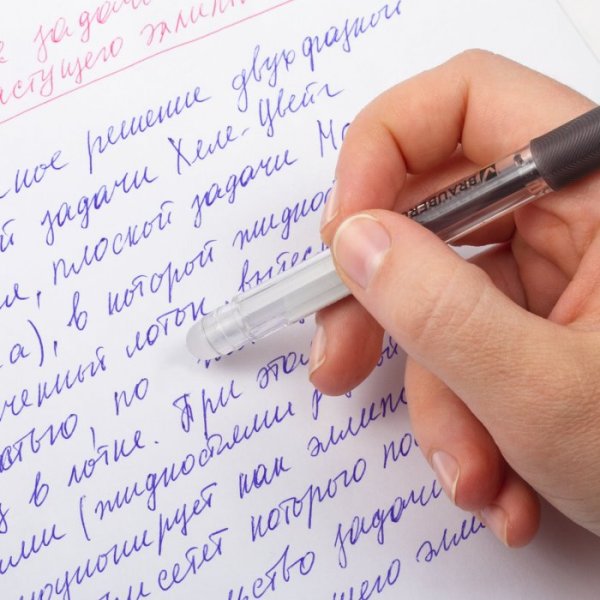 задач
астущего эллип
ное решение двухфазной
й задачи Хеле-Цвейг
я, плоской задачи Мо
а), в которой жидко
ченный лоток, вытес
стью, по
в лотке. При этом
ими (жидкостями
эволюционирует как эллипс
сетет которого по
ство задачи
щего элли
BRAUBER